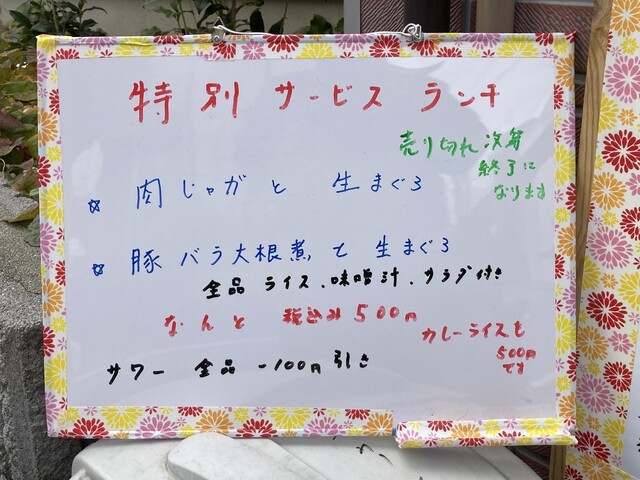 特別サービスランチ
売り切れ次第
終了に
なります
☆ 肉じゃがと 生まぐろ
☆ 豚バラ大根煮と生まぐろ
全品 ライス、味噌汁、サラダ付き
なんと 税込み500円
カレーライスも
500円
です
サワー 全品 -100円引き